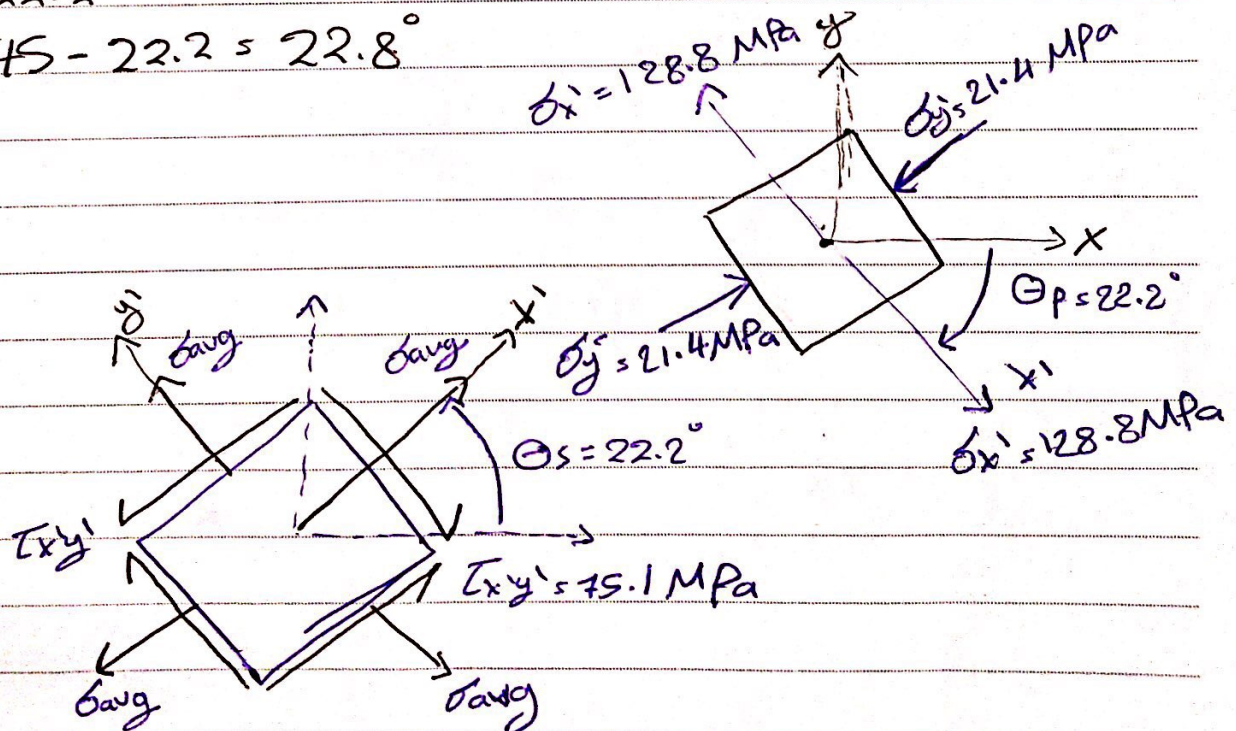 45 - 22.2 = 22.8°
σx' = 128.8 MPa
y
σy' = 21.4 MPa
x
θp = 22.2°
σy' = 21.4 MPa
x'
σx' = 128.8 MPa
y'
σavg
σavg
x'
θs = 22.2°
τx'y'
τx'y' = 75.1 MPa
σavg
σavg